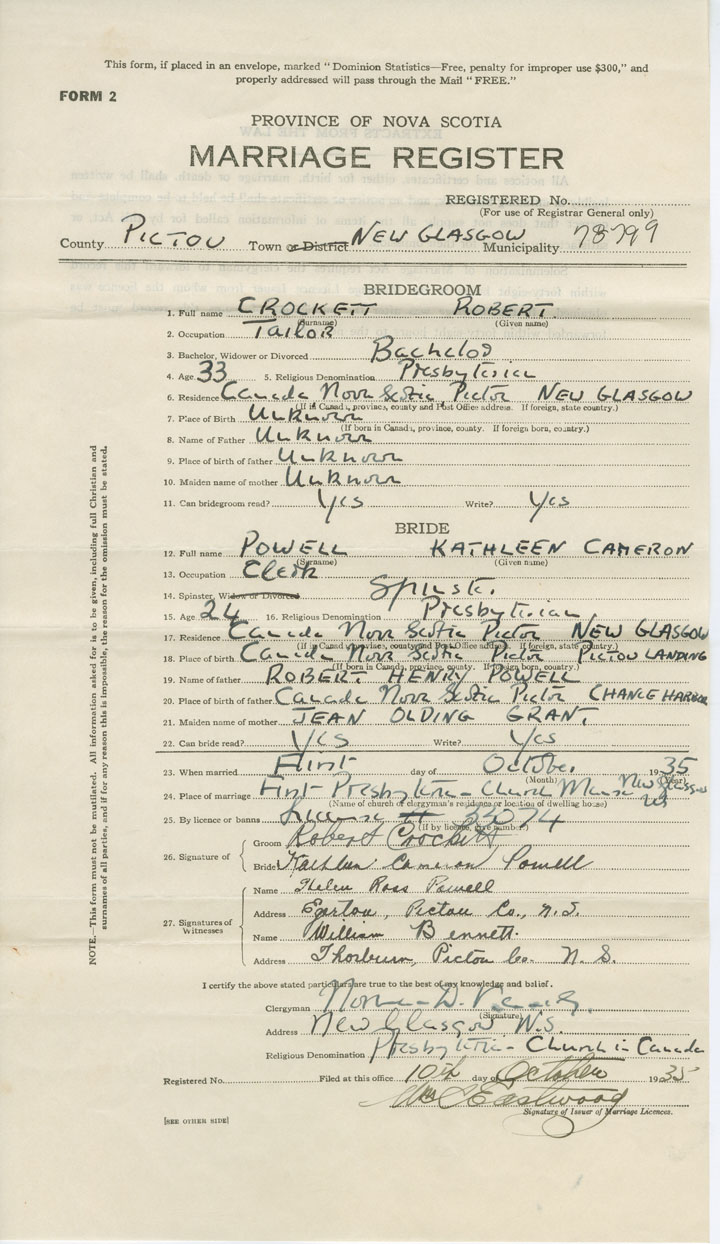 This form, if placed in an envelope, marked "Dominion Statistics—Free, penalty for improper use $300," and
properly addressed will pass through the Mail "FREE."
FORM 2
PROVINCE OF NOVA SCOTIA
MARRIAGE REGISTER
REGISTERED No.
(For use of Registrar General only)
County PICTOU Town or District NEW GLASGOW Municipality 78799
BRIDEGROOM
1. Full name CROCKETT ROBERT
(Surname) (Given name)
2. Occupation Tailor
3. Bachelor, Widower or Divorced Bachelor
4. Age 33 5. Religious Denomination Presbyterian
6. Residence Canada Nova Scotia Pictou NEW GLASGOW
(If in Canada, province, county and Post Office address. If foreign, state country.)
7. Place of Birth Unknown
(If born in Canada, province, county. If foreign born, country.)
8. Name of Father Unknown
9. Place of birth of father Unknown
10. Maiden name of mother Unknown
11. Can bridegroom read? Yes Write? Yes
BRIDE
12. Full name POWELL KATHLEEN CAMERON
(Surname) (Given name)
13. Occupation Clerk
14. Spinster, Widow or Divorced Spinster
15. Age 24 16. Religious Denomination Presbyterian
17. Residence Canada Nova Scotia Pictou NEW GLASGOW
(If in Canada, province, county and Post Office address. If foreign, state country.)
18. Place of birth Canada Nova Scotia Pictou PICTOU LANDING
(If born in Canada, province, county. If foreign born, country.)
19. Name of father ROBERT HENRY POWELL
20. Place of birth of father Canada Nova Scotia Pictou CHANCE HARBOR
21. Maiden name of mother JEAN OLDING GRANT
22. Can bride read? Yes Write? Yes
23. When married First day of October 1935
(Month) (Year)
24. Place of marriage First Presbyterian Church Manse New Glasgow NS
(Name of church or clergyman's residence or location of dwelling house)
25. By licence or banns License # 35074
(If by licence, give number)
26. Signature of
Groom Robert Crockett
Bride Kathleen Cameron Powell
27. Signatures of Witnesses
Name Helen Ross Powell
Address Egerton, Pictou Co., N.S.
Name William Bennett.
Address Thorburn, Pictou Co. N. S.
I certify the above stated particulars are true to the best of my knowledge and belief.
Clergyman Norman D.
(Signature)
Address New Glasgow N.S.
Religious Denomination Presbyterian Church in Canada
Registered No. Filed at this office 10th day of October 1935
Eastwood
Signature of Issuer of Marriage Licences.
[SEE OTHER SIDE]
NOTE.—This form must not be mutilated. All information asked for is to be given, including full Christian and
surnames of all parties, and if for any reason this is impossible, the reason for the omission must be stated.